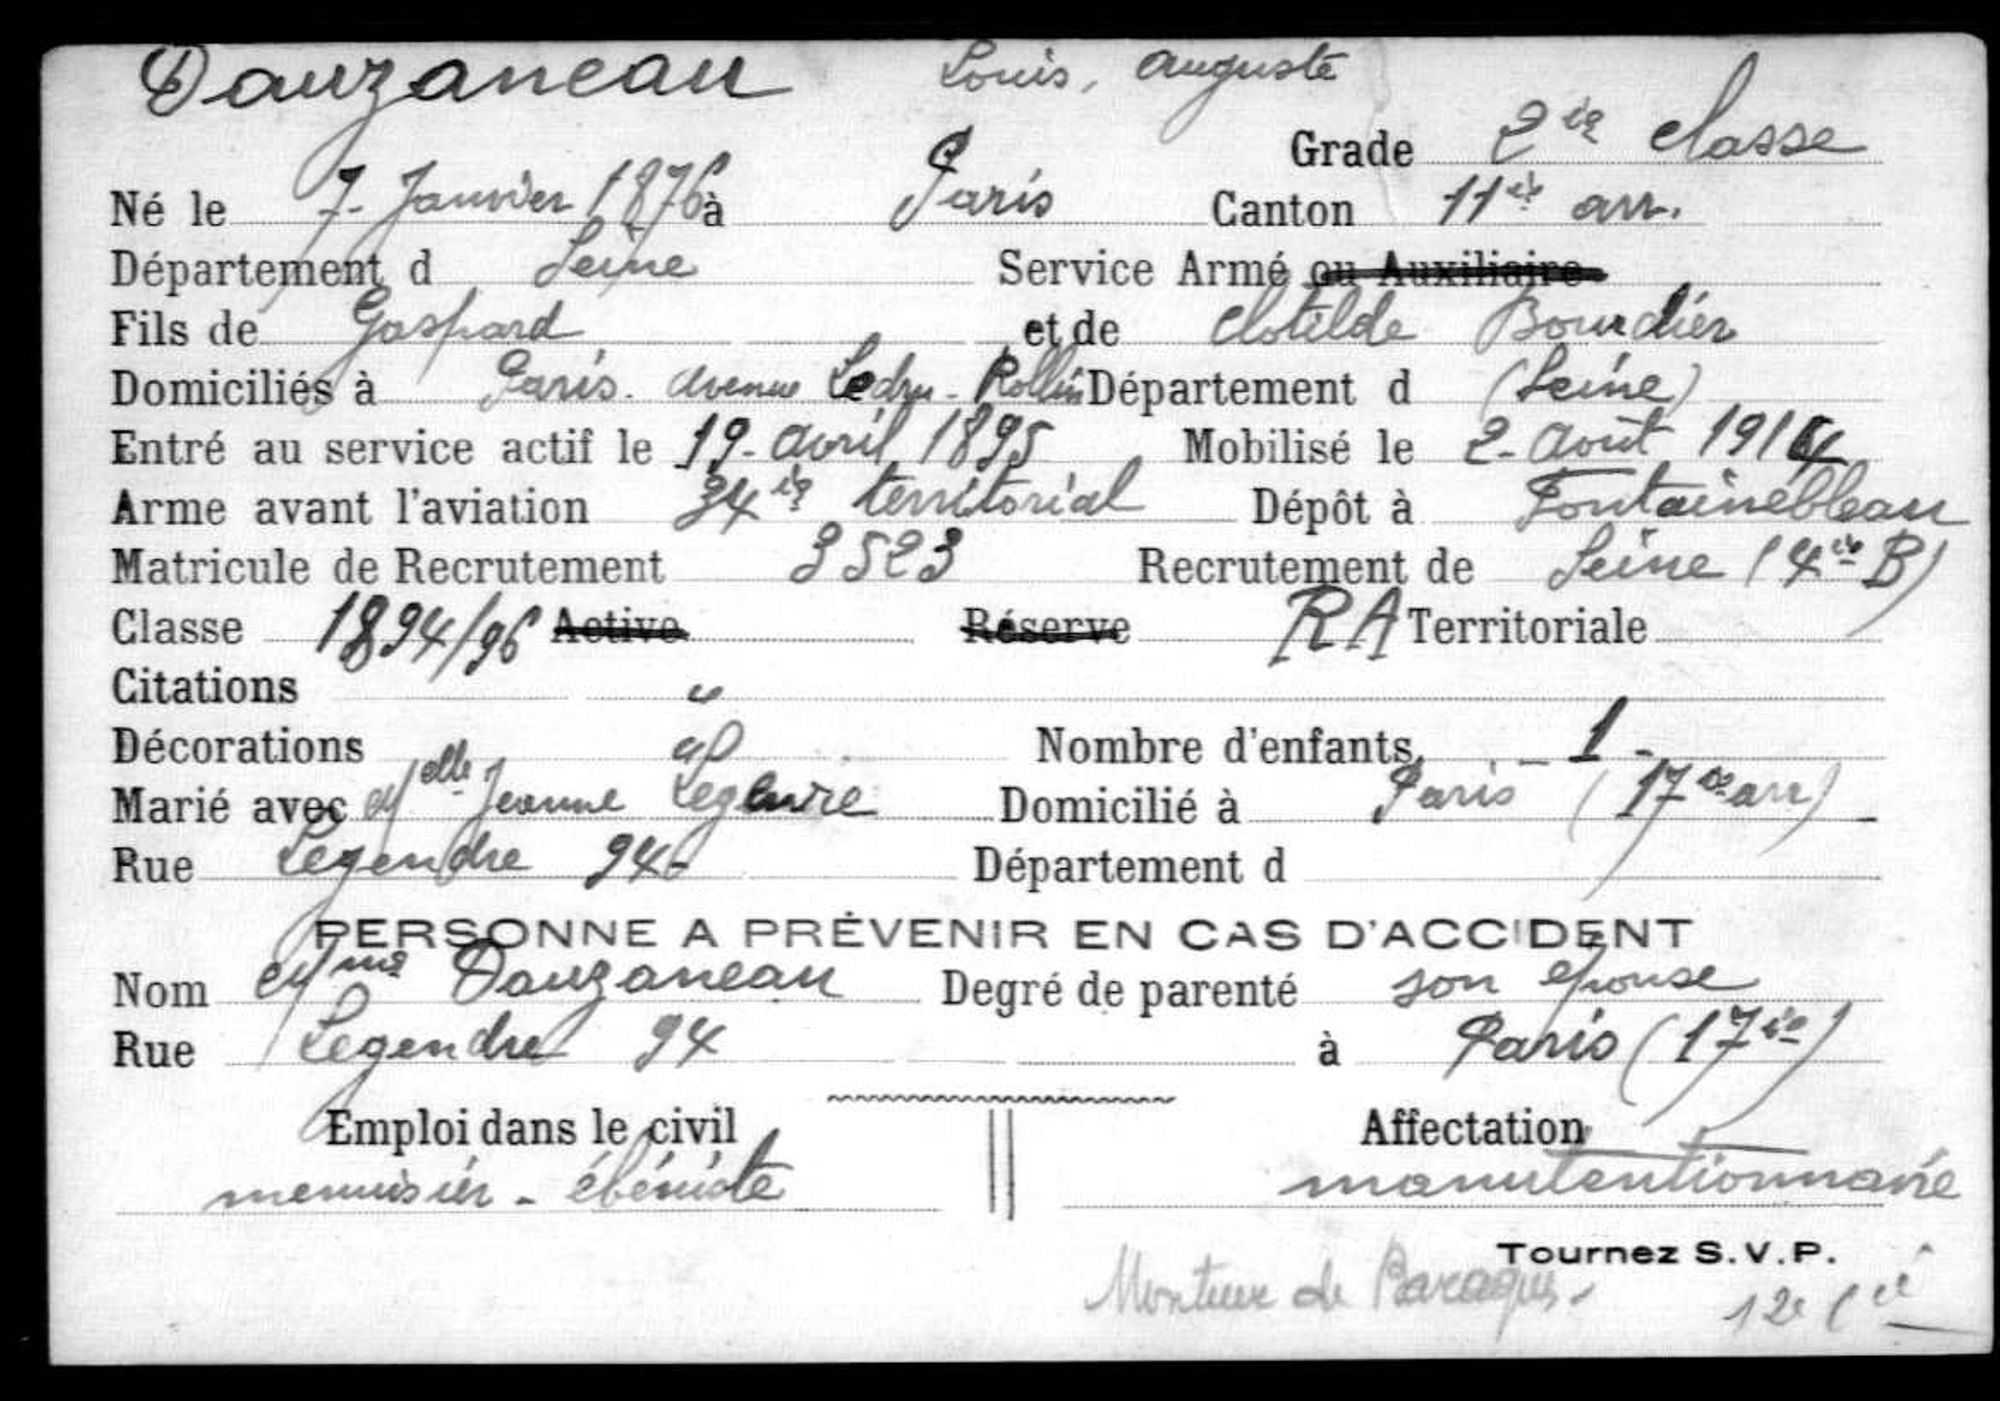 Dauzaneau Louis, Auguste
Grade 2ie classe
Né le 7. Janvier 1876 à Paris Canton 11ie arr.
Département d Seine Service Armé ou Auxiliaire
Fils de Gaspard et de Clotilde Bourdier
Domiciliés à Paris. Avenue Ledru-Rollin Département d (Seine)
Entré au service actif le 19. avril 1895 Mobilisé le 2. Août 1914
Arme avant l'aviation 34ie territorial Dépôt à Fontainebleau
Matricule de Recrutement 3523 Recrutement de Seine (4ie B)
Classe 1894/96 Active Réserve RA Territoriale
Citations "
Décorations Nombre d'enfants 1 -
Marié avec Melle Jeanne Domicilié à Paris (17e arr)
Rue Legendre 94 - Département d
PERSONNE A PRÉVENIR EN CAS D'ACCIDENT
Nom Mme Dauzaneau Degré de parenté son épouse
Rue Legendre 94 à Paris (17ie)
Emploi dans le civil Affectation
menuisier - ébéniste manutentionnaire
Tournez S.V.P.
Monteur de Baraques. 12e Cie